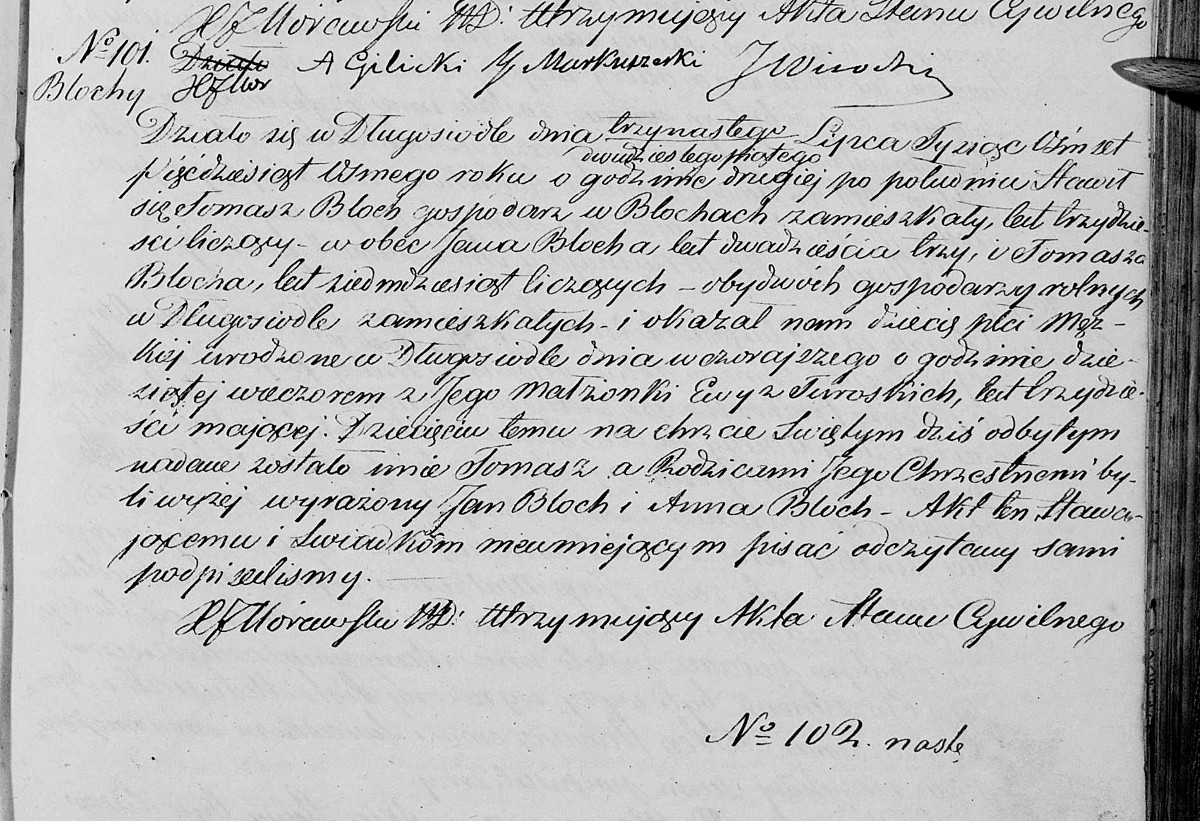 XJMórawski Utrzymujący Akta Stanu Cywilnego
No 101. Działo A Gilicki J Murkuszeski
Blochy XJMor
Działo się w Długosiodle dnia trzynastego Lipca Tysiąc Ośmset
dwudziestego piątego
Pięćdziesiąt Osmego roku o godzinie drugiej po południu Stawił
się Tomasz Bloch gospodarz w Blochach zamieszkały, lat trzydzie-
ści liczący - w obec Jana Blocha, lat dwadzieścia trzy, i Tomasza
Blocha, lat siedmdziesiąt liczących - obydwóch gospodarzy rolnych
w Długosiodle zamieszkałych - i okazał nam dziecię płci Męz-
kiéj urodzone w Długosiodle dnia wczorajszego o godzinie dzie-
siątej wieczorem z Jego Małżonki Ewy z Turoskich, lat trzydzie-
ści mającej. Dziecięciu temu na chrzcie Swiętym dziś odbytym
nadane zostało imie Tomasz a Rodzicami Jego Chrzestnemi by-
li wyżej wyrażony Jan Bloch i Anna Bloch - Akt ten Stawa-
jącemu i Swiadkóm nieumiejącym pisać odczytany sami
podpisaliśmy.
XJMórawski Utrzymujący Akta Stanu Cywilnego
No 102. nastę